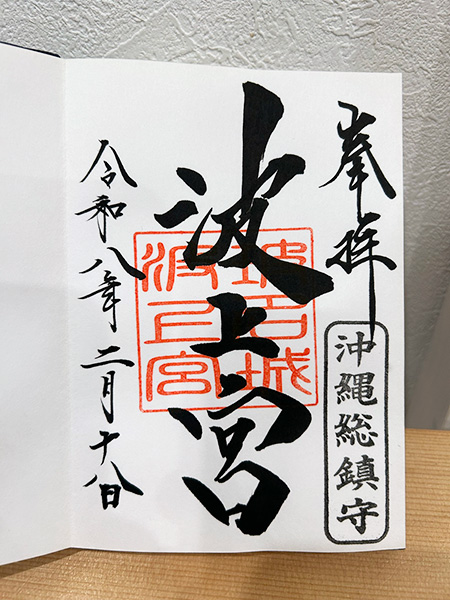 奉拝
沖縄総鎮守
波上宮
玻名城
波上宮
令和八年二月十八日